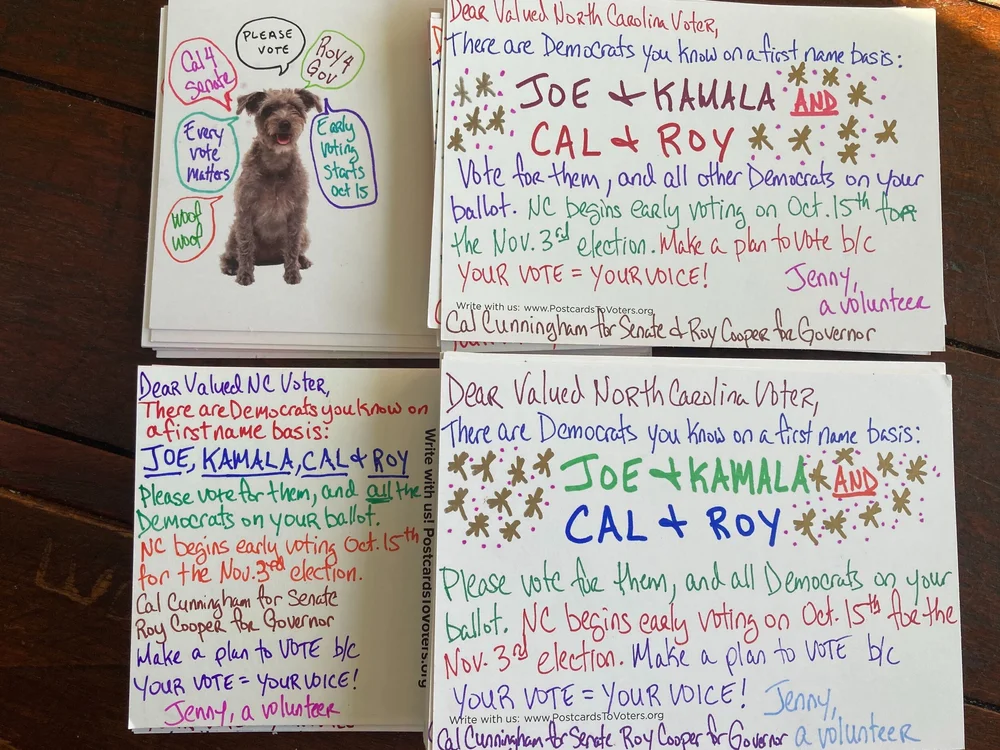 PLEASE
VOTE
Cal 4
Senate
Roy 4
Gov
Every
vote
matters
Early
voting
starts
Oct 15
woof
woof
Dear Valued North Carolina Voter,
There are Democrats you know on a first name basis:
JOE & KAMALA AND
CAL & ROY
Vote for them, and all other Democrats on your
ballot. NC begins early voting on Oct. 15th for
the Nov. 3rd election. Make a plan to vote b/c
YOUR VOTE = YOUR VOICE!
Jenny,
a volunteer
Write with us: www.PostcardsToVoters.org
Cal Cunningham for Senate & Roy Cooper for Governor
Dear Valued NC Voter,
There are Democrats you know on
a first name basis:
JOE, KAMALA, CAL & ROY
Please vote for them, and all the
Democrats on your ballot.
NC begins early voting Oct. 15th
for the Nov. 3rd election.
Cal Cunningham for Senate
Roy Cooper for Governor
Make a plan to VOTE b/c
YOUR VOTE = YOUR VOICE!
Jenny, a volunteer
Write with us! PostcardsToVoters.org
Dear Valued North Carolina Voter,
There are Democrats you know on a first name basis:
JOE & KAMALA AND
CAL & ROY
Please vote for them, and all Democrats on your
ballot. NC begins early voting on Oct. 15th for the
Nov. 3rd election. Make a plan to VOTE b/c
YOUR VOTE = YOUR VOICE!
Jenny,
a volunteer
Write with us: www.PostcardsToVoters.org
Cal Cunningham for Senate Roy Cooper for Governor